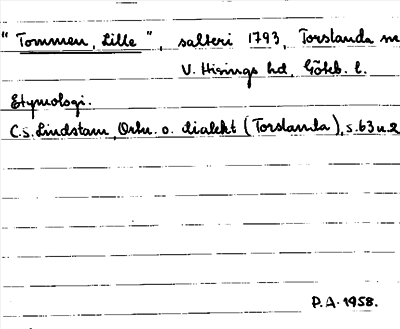 "Tommen, Lille", salteri 1793, Torslanda sn
V. Hisings hd, Göteb. l.
Etymologi.
C.S. Lindstam, Ortn. o. dialekt (Torslanda), s. 63 n. 2
P.A. 1958.